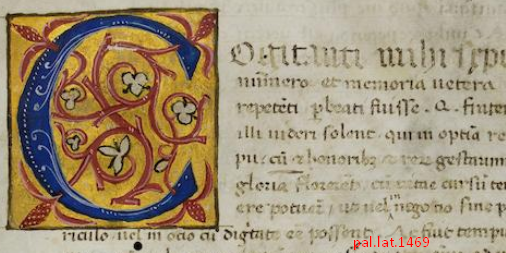 COgitanti mihi sepe
numero et memoria vetera
repetēti pbeati fuisse . Q . frater
illi videri solent . qui in optīa re
pu. cū & honoribꝫ & rerū gestarum
gloria florerēt, cū vitae cursū te
ere potuerūt, ut vel in negotio sine p
riculo vel in ocio cū dignitate eē possent . Ac fuit tempu
pal.lat.1469